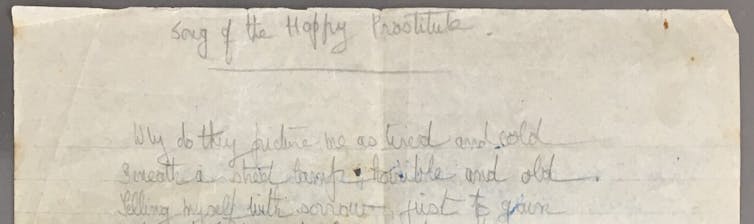 Song of the Happy Prostitute.
Why do they picture me as tired and cold
'neath a street lamp, terrible and old.
Selling myself with sorrow, just to gain